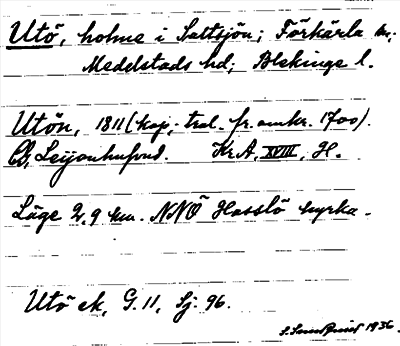 Utö, holme i Saltsjön; Förkärla sn;
Medelstads hd; Blekinge l.
Utön, 1811 (kop. tral. fr. omkr. 1700).
Leijonhufvud. Kr. A. XVIII, H.
Läge 2,9 km. NNÖ Hasslö kyrka.
Utö ek, G. 11, Sj. 96.
1936.